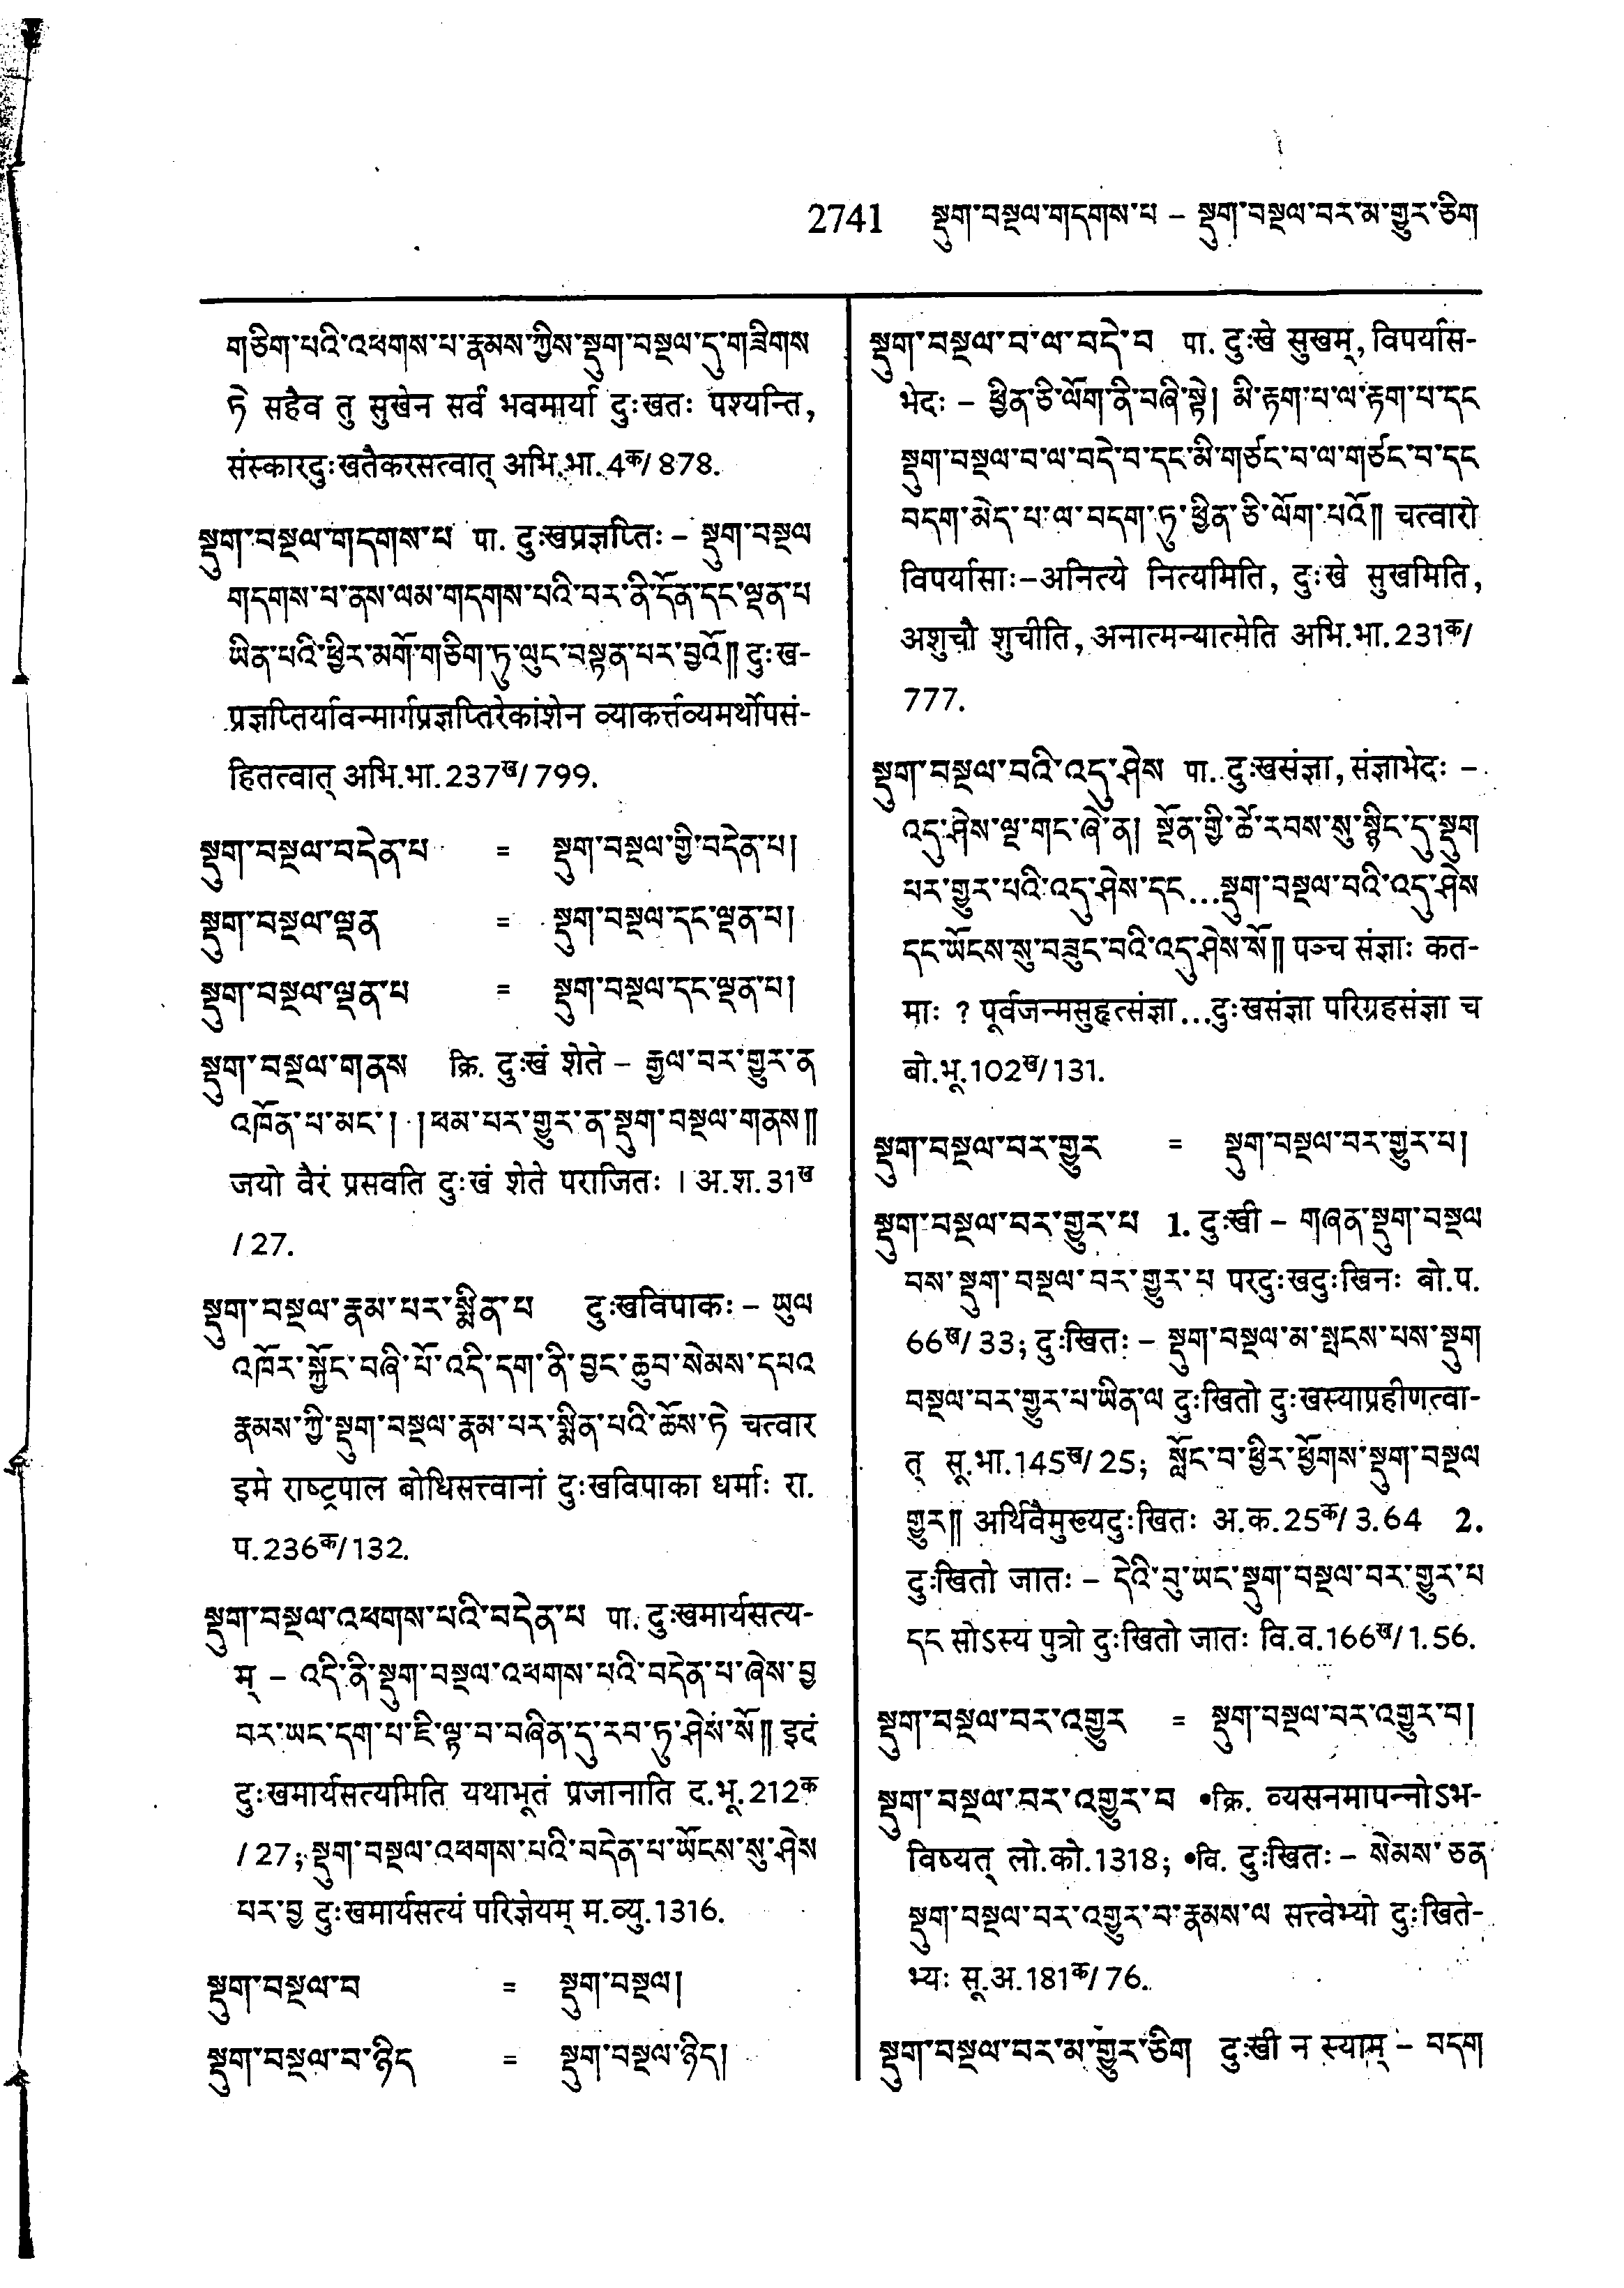 2741 སྡུག་བསྔལ་གདགས་པ – སྡུག་བསྔལ་བར་མ་གྱུར་ཅིག
གཅིག་པའི་འཕགས་པ་རྣམས་ཀྱིས་སྡུག་བསྔལ་དུ་གཟིགས
ཏེ सहैव तु सुखेन सर्वं भवमार्या दुःखतः पश्यन्ति,
संस्कारदुःखतैकरसत्वात् अभि.भा.4क/878.
སྡུག་བསྔལ་གདགས་པ पा. दुःखप्रज्ञप्तिः – སྡུག་བསྔལ
གདགས་པ་ནས་ལམ་གདགས་པའི་བར་ནི་དོན་དང་ལྡན་པ
ཡིན་པའི་ཕྱིར་མགོ་གཅིག་ཏུ་ལུང་བསྟན་པར་བྱའོ༎ दुःख-
प्रज्ञप्तिर्यावन्मार्गप्रज्ञप्तिरेकांशेन व्याकर्त्तव्यमर्थोपसं-
हितत्वात् अभि.भा.237ख/799.
སྡུག་བསྔལ་བདེན་པ = སྡུག་བསྔལ་གྱི་བདེན་པ།
སྡུག་བསྔལ་ལྡན = སྡུག་བསྔལ་དང་ལྡན་པ།
སྡུག་བསྔལ་ལྡན་པ = སྡུག་བསྔལ་དང་ལྡན་པ།
སྡུག་བསྔལ་གནས क्रि. दुःखं शेते – རྒྱལ་བར་གྱུར་ན
འཁོན་པ་མང་། །ཕམ་པར་གྱུར་ན་སྡུག་བསྔལ་གནས༎
जयो वैरं प्रसवति दुःखं शेते पराजितः । अ.श.31ख
/27.
སྡུག་བསྔལ་རྣམ་པར་སྨིན་པ दुःखविपाकः – ཡུལ
འཁོར་སྐྱོང་བཞི་པོ་འདི་དག་ནི་བྱང་ཆུབ་སེམས་དཔའ
རྣམས་ཀྱི་སྡུག་བསྔལ་རྣམ་པར་སྨིན་པའི་ཆོས་ཏེ चत्वार
इमे राष्ट्रपाल बोधिसत्त्वानां दुःखविपाका धर्माः रा.
प.236क/132.
སྡུག་བསྔལ་འཕགས་པའི་བདེན་པ पा. दुःखमार्यसत्य-
म् – འདི་ནི་སྡུག་བསྔལ་འཕགས་པའི་བདེན་པ་ཞེས་བྱ
བར་ཡང་དག་པ་ཇི་ལྟ་བ་བཞིན་དུ་རབ་ཏུ་ཤེས་སོ༎ इदं
दुःखमार्यसत्यमिति यथाभूतं प्रजानाति द.भू.212क
/27; སྡུག་བསྔལ་འཕགས་པའི་བདེན་པ་ཡོངས་སུ་ཤེས
པར་བྱ दुःखमार्यसत्यं परिज्ञेयम् म.व्यु.1316.
སྡུག་བསྔལ་བ = སྡུག་བསྔལ།
སྡུག་བསྔལ་བ་ཉིད = སྡུག་བསྔལ་ཉིད།
སྡུག་བསྔལ་བ་ལ་བདེ་བ पा. दुःखे सुखम्, विपर्यास-
भेदः – ཕྱིན་ཅི་ལོག་ནི་བཞི་སྟེ། མི་རྟག་པ་ལ་རྟག་པ་དང
སྡུག་བསྔལ་བ་ལ་བདེ་བ་དང་མི་གཙང་བ་ལ་གཙང་བ་དང
བདག་མེད་པ་ལ་བདག་ཏུ་ཕྱིན་ཅི་ལོག་པའོ༎ चत्वारो
विपर्यासाः–अनित्ये नित्यमिति, दुःखे सुखमिति,
अशुचौ शुचीति, अनात्मन्यात्मेति अभि.भा.231क/
777.
སྡུག་བསྔལ་བའི་འདུ་ཤེས पा. दुःखसंज्ञा, संज्ञाभेदः –
འདུ་ཤེས་ལྔ་གང་ཞེ་ན། སྔོན་གྱི་ཚེ་རབས་སུ་སྙིང་དུ་སྡུག
པར་གྱུར་པའི་འདུ་ཤེས་དང...སྡུག་བསྔལ་བའི་འདུ་ཤེས
དང་ཡོངས་སུ་བཟུང་བའི་འདུ་ཤེས་སོ༎ पञ्च संज्ञाः कत-
माः ? पूर्वजन्मसुहृत्संज्ञा...दुःखसंज्ञा परिग्रहसंज्ञा च
बो.भू.102ख/131.
སྡུག་བསྔལ་བར་གྱུར = སྡུག་བསྔལ་བར་གྱུར་པ།
སྡུག་བསྔལ་བར་གྱུར་པ 1. दुःखी – གཞན་སྡུག་བསྔལ
བས་སྡུག་བསྔལ་བར་གྱུར་པ परदुःखदुःखिनः बो.प.
66ख/33; दुःखितः – སྡུག་བསྔལ་མ་སྤངས་པས་སྡུག
བསྔལ་བར་གྱུར་པ་ཡིན་ལ दुःखितो दुःखस्याप्रहीणत्वा-
त् सू.भा.145ख/25; སློང་བ་ཕྱིར་ཕྱོགས་སྡུག་བསྔལ
གྱུར༎ अर्थिवैमुख्यदुःखितः अ.क.25क/3.64 2.
दुःखितो जातः – དེའི་བུ་ཡང་སྡུག་བསྔལ་བར་གྱུར་པ
དང सोऽस्य पुत्रो दुःखितो जातः वि.व.166ख/1.56.
སྡུག་བསྔལ་བར་འགྱུར = སྡུག་བསྔལ་བར་འགྱུར་བ།
སྡུག་བསྔལ་བར་འགྱུར་བ •क्रि. व्यसनमापन्नोऽभ-
विष्यत् लो.को.1318; •वि. दुःखितः – སེམས་ཅན
སྡུག་བསྔལ་བར་འགྱུར་བ་རྣམས་ལ सत्त्वेभ्यो दुःखिते-
भ्यः सू.अ.181क/76.
སྡུག་བསྔལ་བར་མ་གྱུར་ཅིག दुःखी न स्याम् – བདག